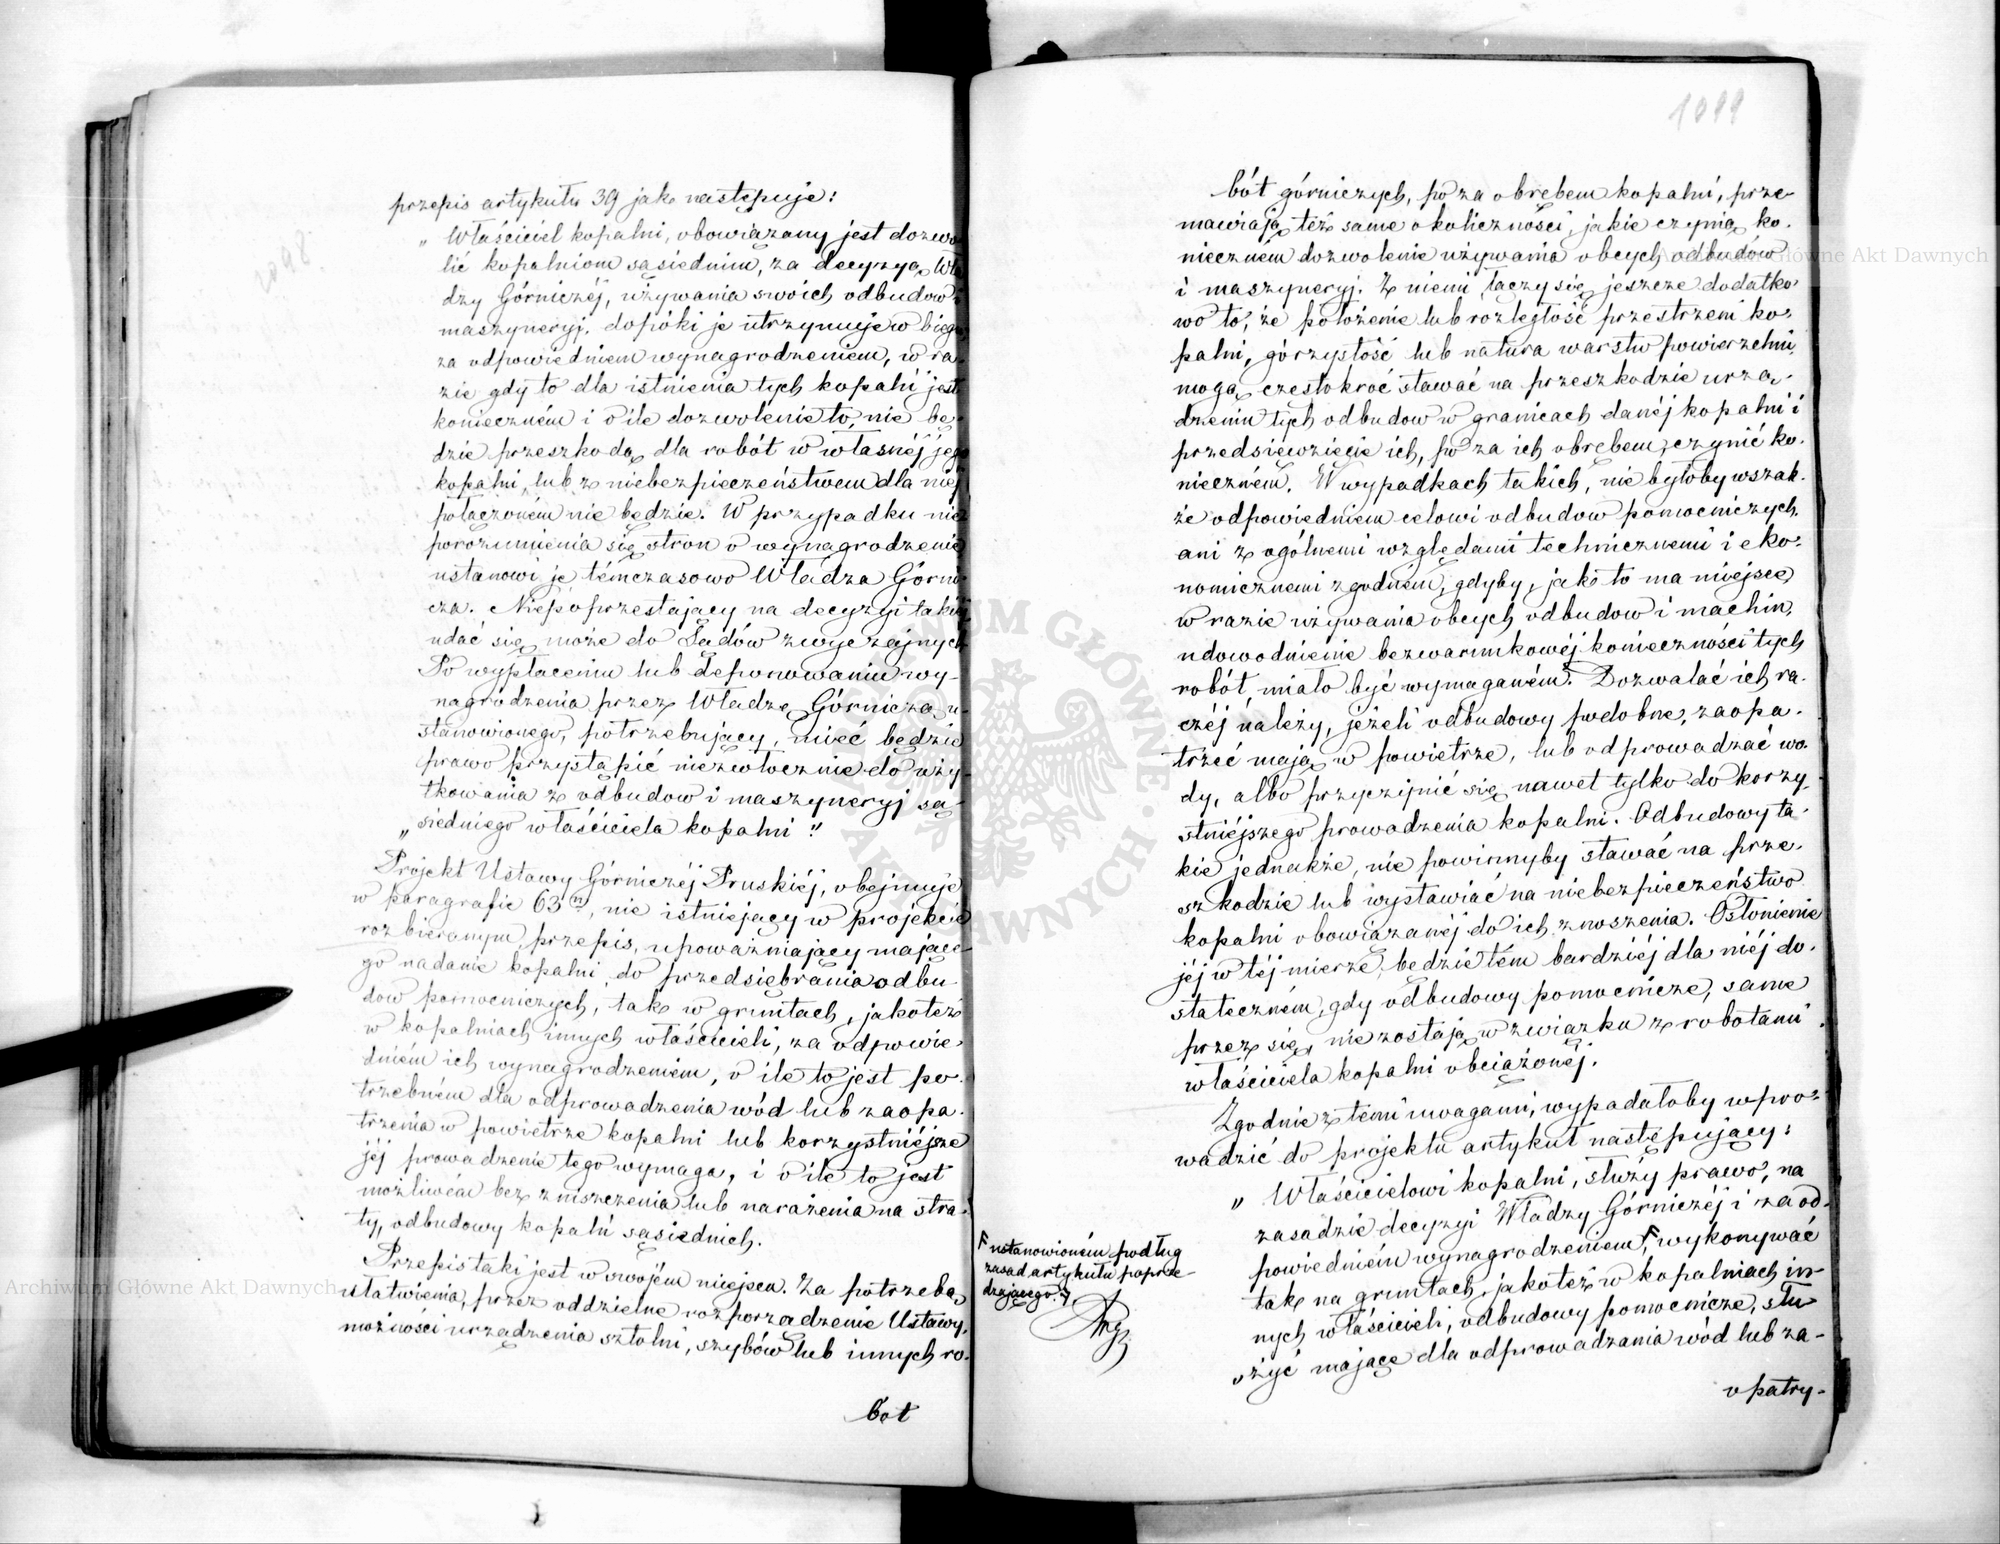 przepis artykułu 39 jako następuje:
„Właściciel kopalni, obowiązany jest dozwo
lić kopalniom sąsiednim, za decyzyą Wła
dzy Górniczéj, używania swoich odbudow i
maszyneryj, dopóki je utrzymuje w biegu,
za odpowiedniem wynagrodzeniem, w ra-
zie gdy to dla istnienia tych kopalń jest
konieczném i o ile dozwolenie to, nie bę-
dzie przeszkodą dla robót w własnéj jego
kopalni, lub z niebezpieczeństwem dla niéj
połączoném nie będzie. W przypadku nie
porozumienia się stron o wynagrodzenie
ustanowi je témczasowo Władza Górni-
cza. Niepoprzestający na decyzyi takiéj
udać się może do Sądów zwyczajnych
Po wypłaceniu lub deponowaniu wy-
nagrodzenia przez Władzę Górniczą u-
stanowionego, potrzebujący, mieć będzie
prawo przystąpić niezwłocznie do uży-
tkowania z odbudow i maszyneryj są-
„siedniego właściciela kopalni."
Projekt Ustawy Górniczéj Pruskiéj, obejmuje
w paragrafie 63m, nie istniejący w projekcie
rozbieranym, przepis, upoważniający mające-
go nadanie kopalni, do przedsiębrania odbu
dow pomocniczych, tak w gruntach, jakoteż
w kopalniach innych właścicieli, za odpowie-
dniém ich wynagrodzeniem, o ile to jest po-
trzebném dla odprowadzenia wód lub zaopa-
trzenia w powietrze kopalni lub korzystniéjsze
jéj prowadzenie tego wymaga, i o ile to jest
możliwém bez zniszczenia lub narażenia na stra-
ty, odbudowy kopalń sąsiednich.
Przepis taki jest w swojém miejscu. Za potrzebą
ułatwienia, przez oddzielne rozporządzenie Ustawy,
możności urządzenia sztolni, szybów lub innych ro-
bót
1099
bót górniczych, po za obrębem kopalni, prze-
mawiają też same okoliczności, jakie czynią ko-
nieczném dozwolenie używania obcych odbudów
i maszyneryj. Z niemi łączy się jeszcze dodatko-
wo to, że położenie lub rozległość przestrzeni ko-
palni, górzystość lub natura warstw powierzchni,
mogą częstokroć stawać na przeszkodzie urzą-
dzeniu tych odbudow w granicach danéj kopalni i
przedsięwzięcie ich, po za ich obrębem, czynić ko-
nieczném. W wypadkach takich, nie byłoby wszak-
że odpowiedniem celowi odbudow pomocniczych,
ani z ogólnemi względami technicznemi i eko-
nomicznemi zgodném, gdyby, jako to ma miejsce,
w razie używania obcych odbudow i machin,
udowodnienie bezwarunkowéj konieczności tych
robót, miało być wymaganém. Dozwalać ich ra-
czéj należy, jeżeli odbudowy podobne, zaopa-
trzeć mają w powietrze, lub odprowadzać wo-
dy, albo przyczynić się nawet tylko do korzy-
stniéjszego prowadzenia kopalni. Odbudowy ta-
kie jednakże, nie powinnyby stawać na prze-
szkodzie lub wystawiać na niebezpieczeństwo
kopalni obowiązanéj do ich znoszenia. Osłonienie
jéj w téj mierze, będzie tém bardziéj dla niéj do-
stateczném, gdy odbudowy pomocnicze, same
przez się, nie zostają w związku z robotami
właściciela kopalni obciążonéj.
Zgodnie z temi uwagami, wypadałoby wpro-
wadzić do projektu artykuł następujący:
„Właścicielowi kopalni, służy prawo, na
zasadzie decyzyi Władzy Górniczéj i za od-
powiedniém wynagrodzeniem, F wykonywać
tak na gruntach, jakoteż w kopalniach in-
nych właścicieli, odbudowy pomocnicze, słu
żyć mające dla odprowadzania wód lub za-
opatry-
F ustanowioném podług
zasad artykułu poprze
dzającego. 7
Archiwum Główne Akt Dawnych
Archiwum Główne Akt Dawnych
ARCHIWUM GŁÓWNE AKT DAWNYCH